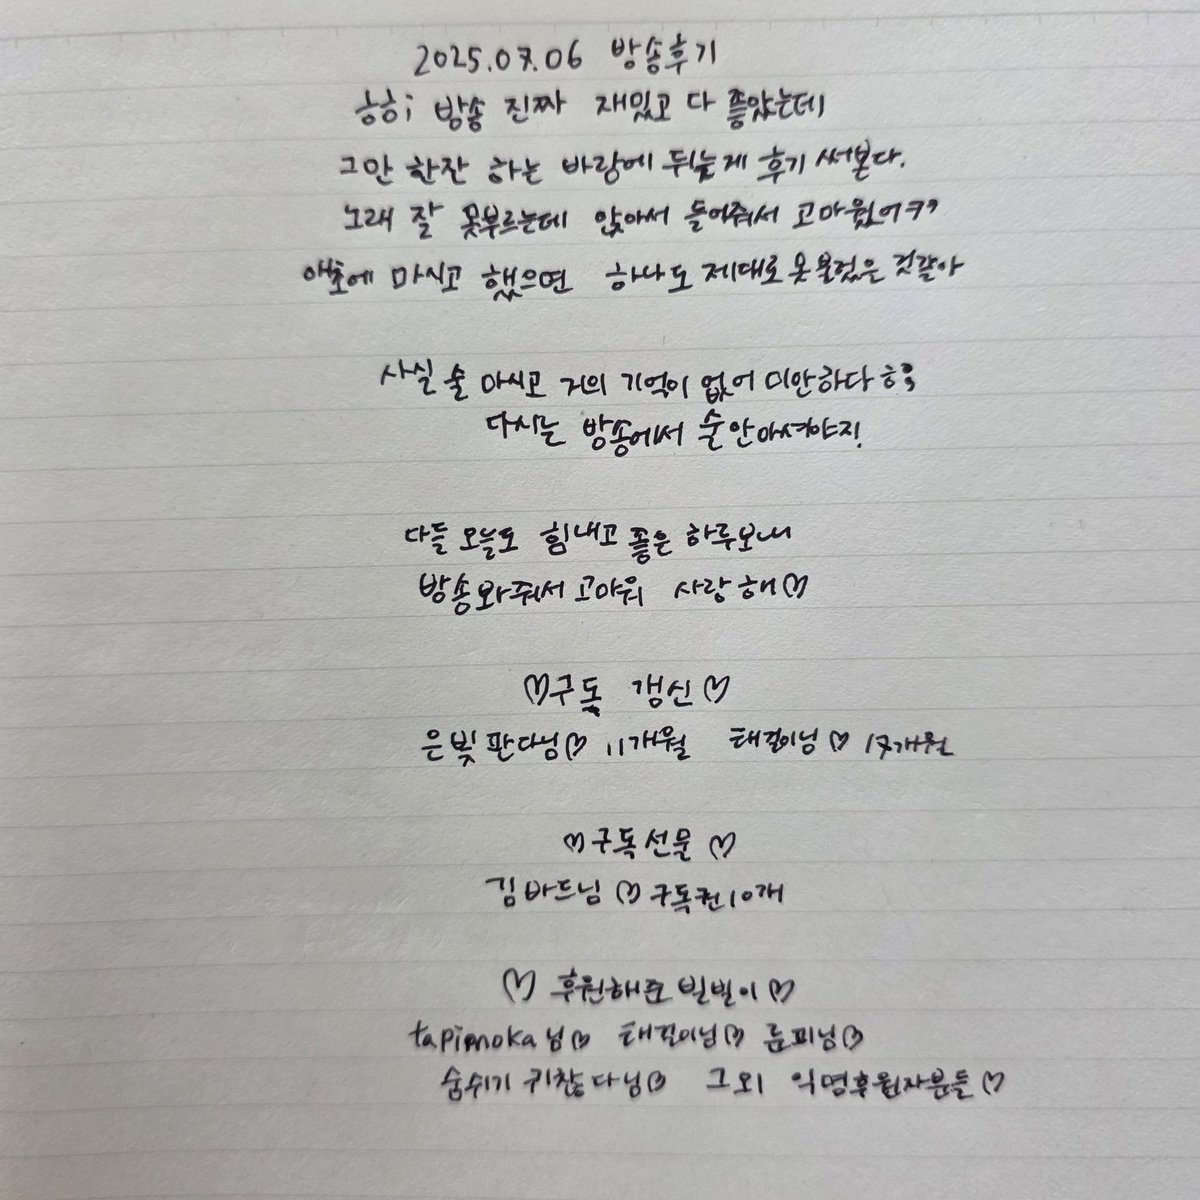 2025.07.06 방송후기
하하i 방송 진짜 재밌고 다 좋았는데
그만 한잔 하는 바람에 뒤늦게 후기 써본다.
노래 잘 못부르는데 앉아서 들어줘서 고마웠어ㅋㅋ
애초에 마시고 했으면 하나도 제대로 못 불렀을 것같아
사실 술 마시고 거의 기억이 없어 미안하다 ㅎ;;
다시는 방송에서 술 안마셔야지!
다들 오늘도 힘내고 좋은 하루보내
방송와줘서 고마워 사랑해♡
♡구독 갱신♡
은빛판다님♡ 11개월 태걸이님♡ 17개월
♡구독선물♡
김바드님♡구독권10개
♡ 후원해준 빌빌이♡
tapimoka님♡ 태걸이님♡ 룬피님♡
숨쉬기 귀찮다님♡ 그 외 익명후원자분들♡